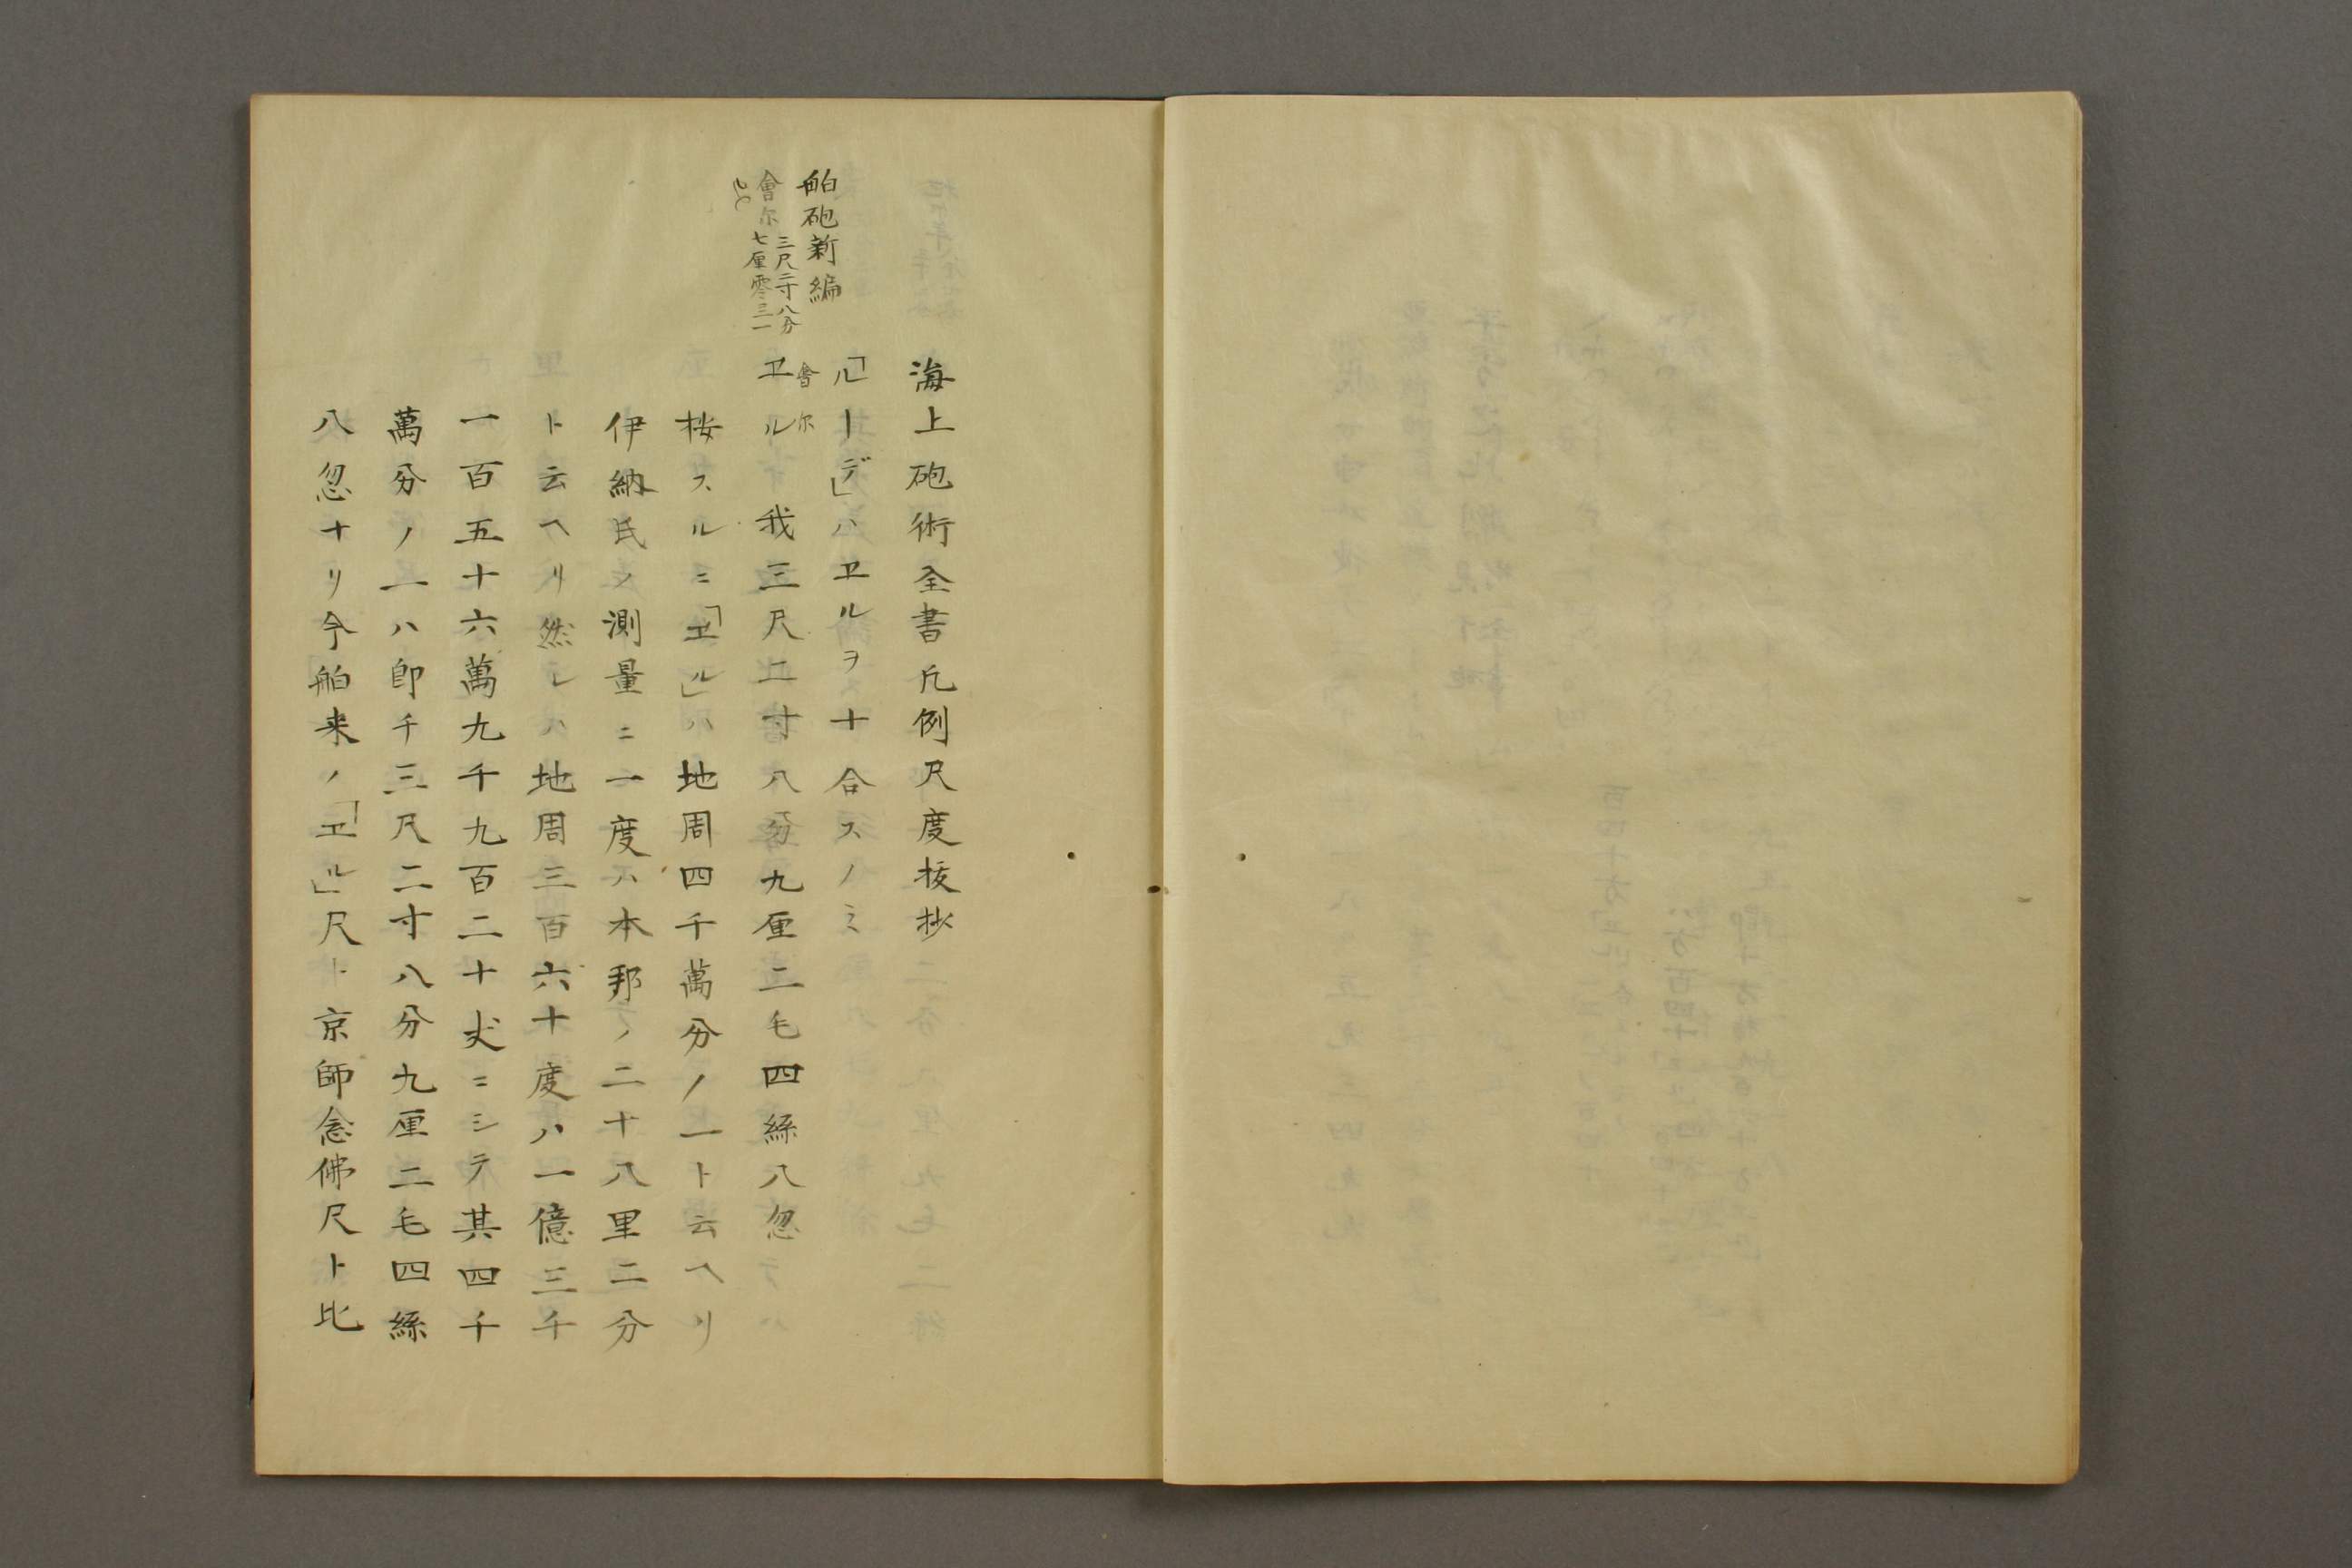 海上砲術全書凡例尺度抜抄
「ルーデ」ハヱルヲ十合スノミ
ヱル 會尓 我三尺二寸八分九厘二毛四絲八忽
桉スルニ「ヱル」ハ地周四千萬分ノ一ト云ヘリ
伊納氏ノ測量ニ一度ハ本邦ノ二十八里二分
ト云ヘリ然レハ地周三百六十度ハ一億三千
一百五十六萬九千九百二十丈ニシテ其四千
萬分ノ一ハ即千三尺二寸八分九厘二毛四絲
八忽ナリ今舶来ノ「ヱル」尺ト京師念佛尺ト比
舶砲新編
會尓 三尺二寸八分
七厘零三一